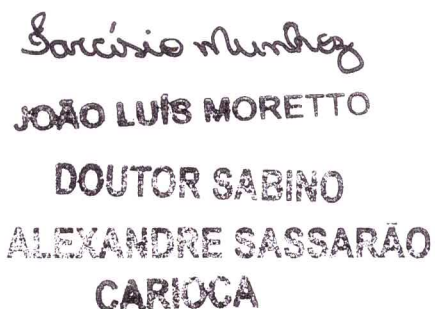 Tarcísio Munhoz
JOÃO LUÍS MORETTO
DOUTOR SABINO
ALEXANDRE SASSARÃO
CARIOCA